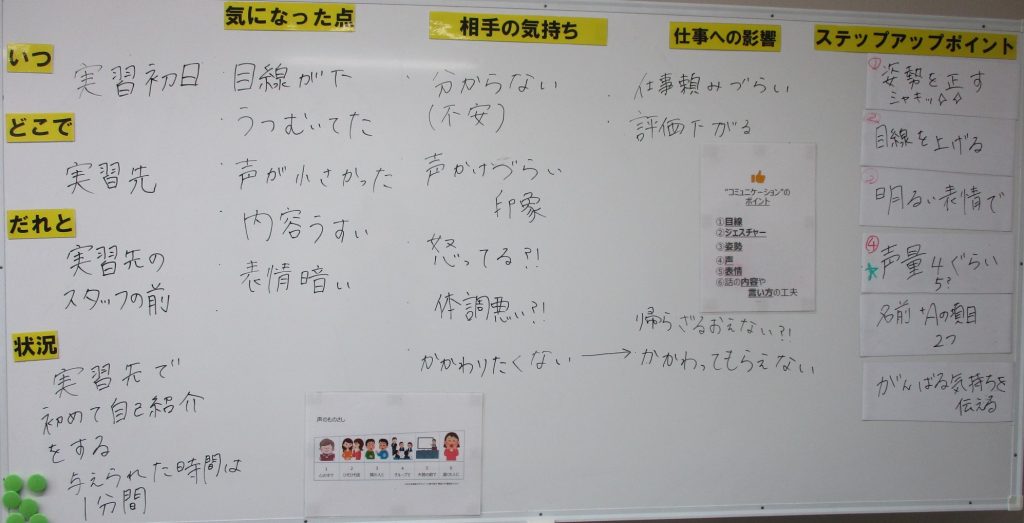 いつ
実習初日
どこで
実習先
だれと
実習先の
スタッフの前
状況
実習先で
初めて自己紹介
をする
与えられた時間は
1分間
気になった点
目線が下
うつむいてた
声が小さかった
内容うすい
表情暗い
相手の気持ち
分からない
(不安)
声かけづらい
印象
怒ってる?!
体調悪い?!
かかわりたくない →
仕事への影響
仕事頼みづらい
評価下がる
帰らざるおえない?!
かかわってもらえない
"コミュニケーション"の
ポイント
①目線
②ジェスチャー
③姿勢
④声
⑤表情
⑥話の内容や
言い方の工夫
ステップアップポイント
① 姿勢を正す
シャキッ☆☆
② 目線を上げる
③ 明るい表情で
④ ★声量4ぐらい
5?
名前+Aの項目
2つ
がんばる気持ちを
伝える
声のものさし
1 2 3 4 5 6